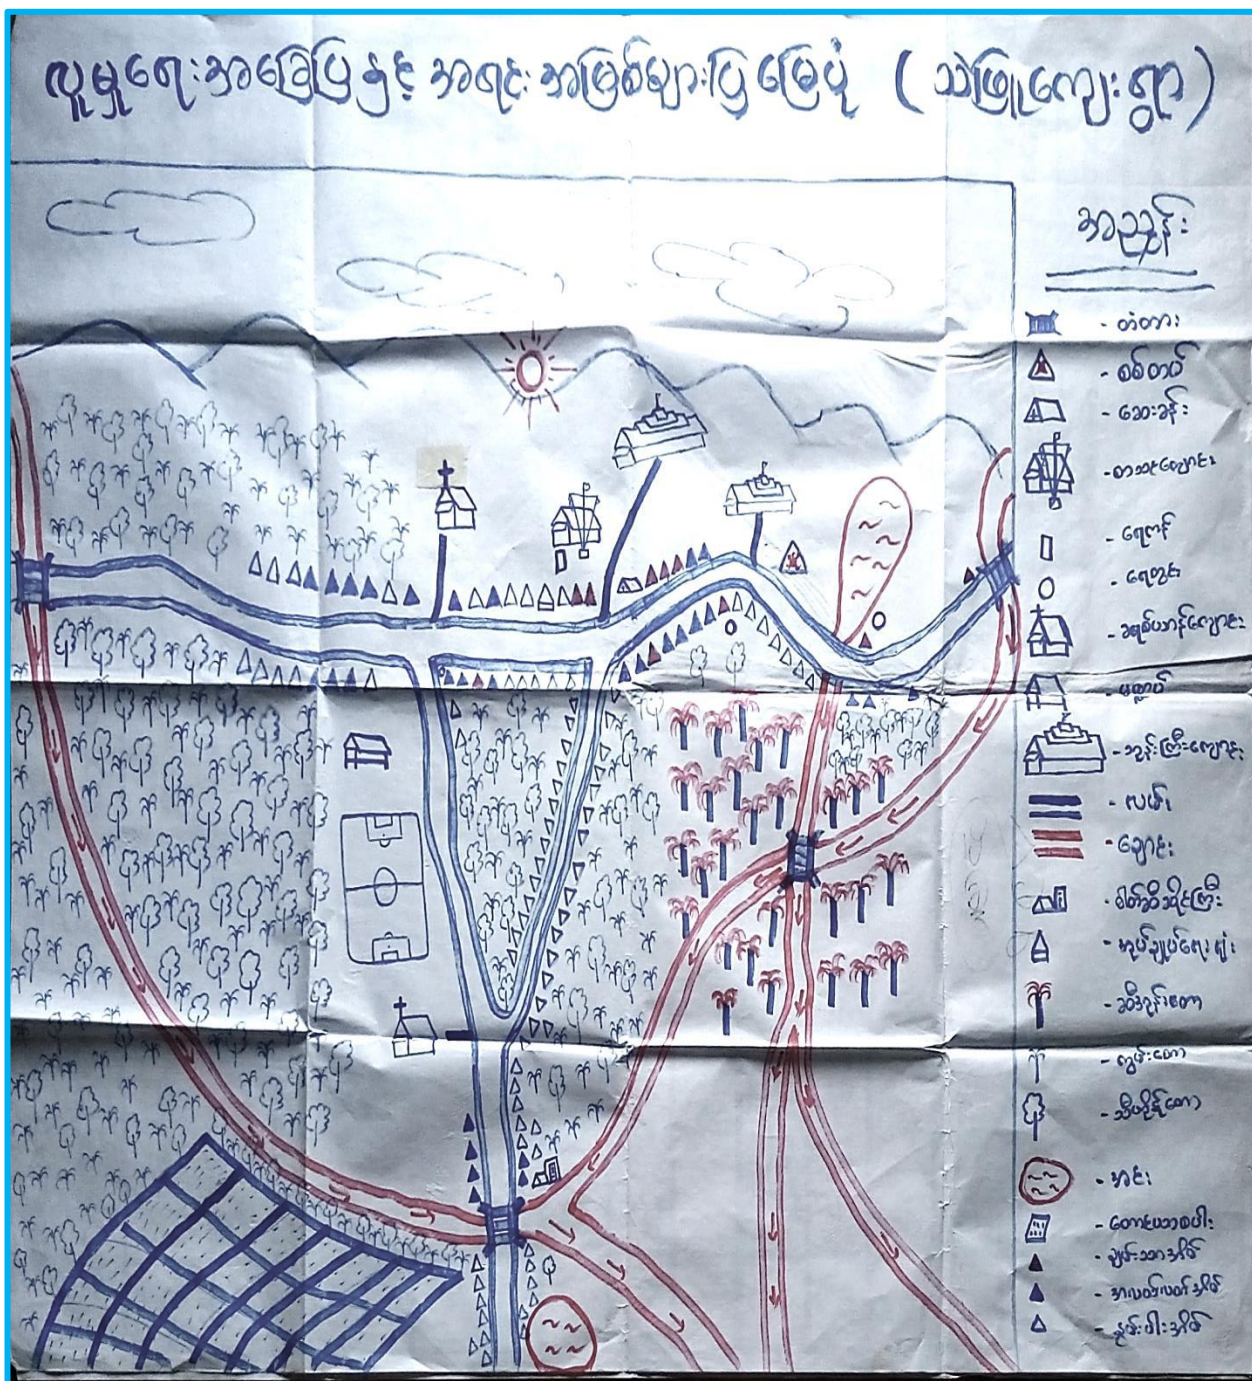 လူမှုရေးအခြေပြနှင့် အရင်းအမြစ်များပြ မြေပုံ ( သဲဖြူကျေးရွာ )
အညွှန်း
- တံတား
- စစ်တပ်
- ဆေးခန်း
- စာသင်ကျောင်း
- ရေကန်
- ရေတွင်း
- ခရစ်ယာန်ကျောင်း
- မဏ္ဍပ်
- ဘုန်းကြီးကျောင်း
- လမ်း
- ချောင်း
- ဓါတ်ဆီဆိုင်ကြီး
- အုပ်ချုပ်ရေးရုံး
- ဆီအုန်းတော
- ကွမ်းတော
- သီဟိုဠ်တော
- အင်း
- တောင်ယာစပါး
- ချမ်းသာအိမ်
- အလတ်လတ်အိမ်
- နွမ်းပါးအိမ်